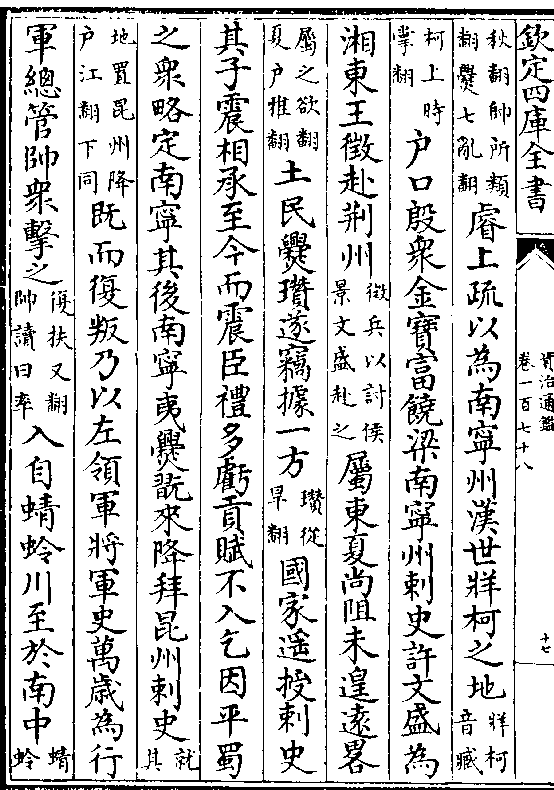 欽定四庫全書
資治通鑑
卷一百七十八
十七
秋翻帥所類翻爨七亂翻睿上疏以為南寧州漢世牂柯之地牂柯音臧
柯上時掌翻户口殷衆金寶富饒梁南寧州刺史許文盛為
湘東王徵赴荆州徵兵以討侯景文盛赴之屬東夏尚阻未遑遠畧
屬之欲翻夏户雅翻土民爨瓚遂竊據一方瓚從旱翻國家遥授刺史
其子震相承至今而震臣禮多虧貢賦不入乞因平蜀
之衆略定南寧其後南寧夷爨翫來降拜昆州刺史就其
地置昆州降户江翻下同既而復叛乃以左領軍將軍史萬歲為行
軍總管帥衆擊之復扶又翻帥讀曰率入自蜻蛉川至於南中蜻蛉